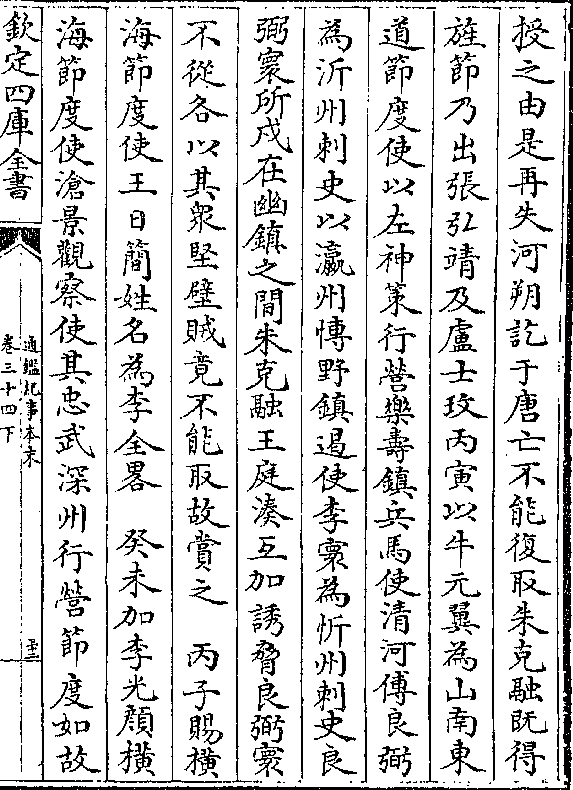 授之由是再失河朔訖于唐亡不能復取朱克融既得
旌節乃出張弘靖及盧士玫丙寅以牛元翼為山南東
道節度使以左神策行營樂壽鎮兵馬使清河傅良弼
為沂州刺史以瀛州愽野鎮遏使李寰為忻州刺史良
弼寰所戍在幽鎮之間朱克融王庭湊互加誘脅良弼寰
不從各以其衆堅壁賊竟不能取故賞之　丙子賜橫
海節度使王日簡姓名為李全畧　癸未加李光顔橫
海節度使滄景觀察使其忠武深州行營節度如故
欽定四庫全書
通鑑記事本末
卷三十四下